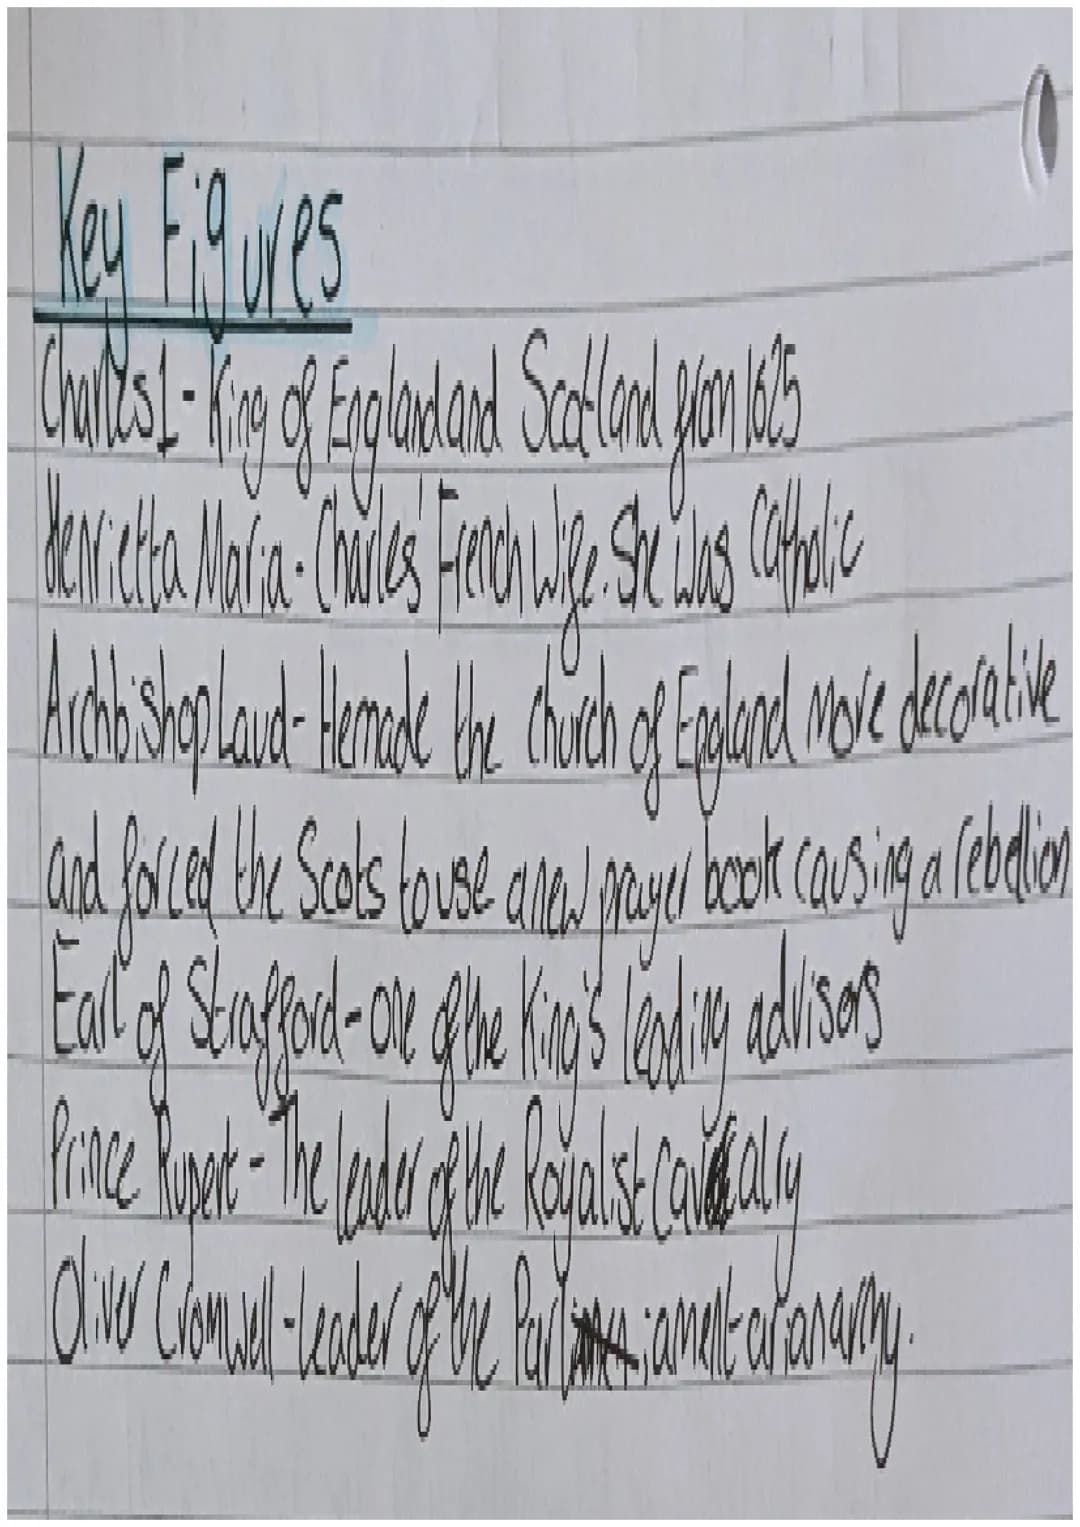 Key Figures
Charles 1 - King of England and Scotland from 1625
Henrietta Maria - Charles' French Wife. She was Catholic
Archbishop Laud - He made the church of England more decorative
and forced the Scots to use a new prayer book causing a rebellion
Earl of Strafford - one of the King's leading advisors
Prince Rupert - The leader of the Royalist Cavalry
Oliver Cromwell - Leader of the Parliamentarian army.